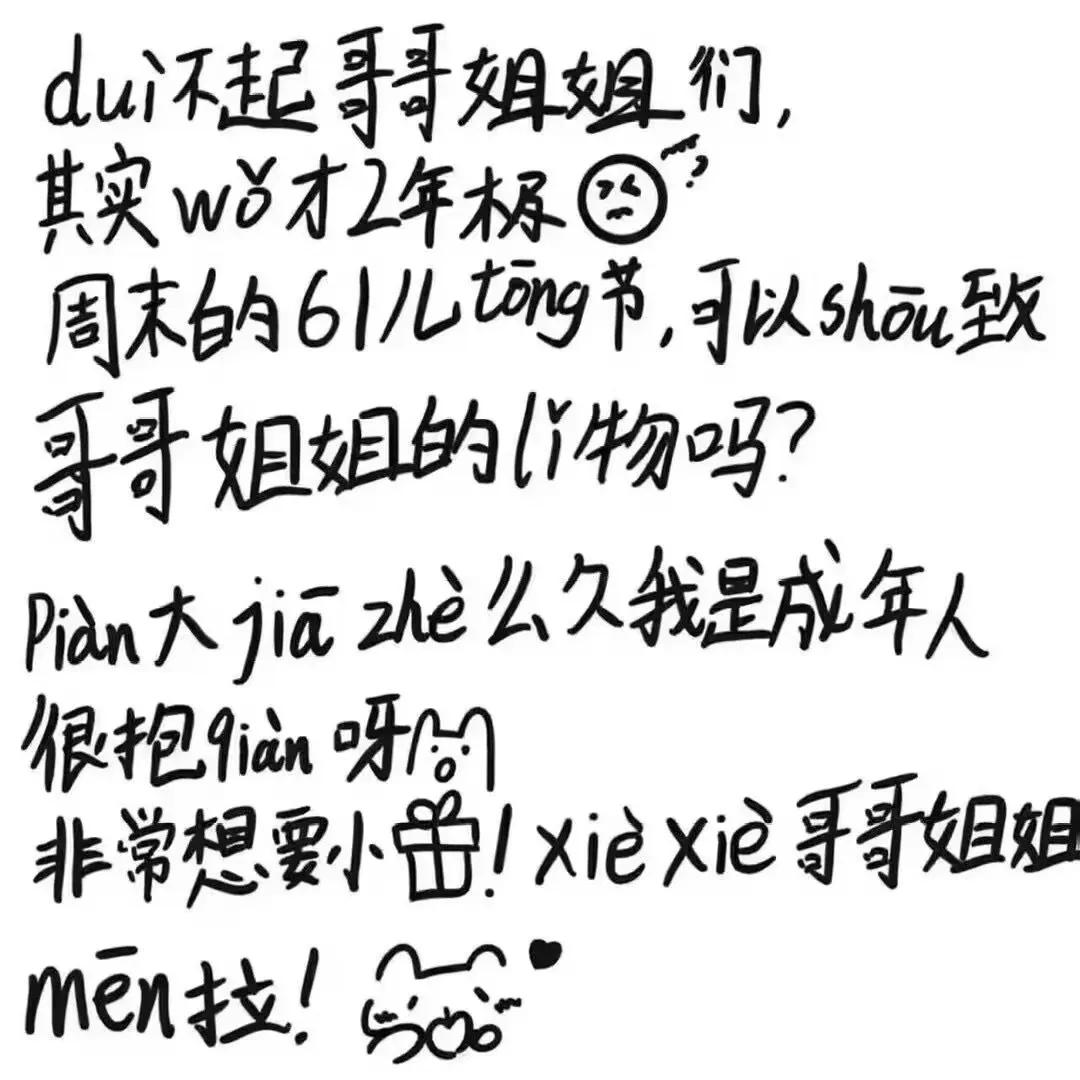 dui不起哥哥姐姐们,
其实wǒ才2年极
周末的61儿tōng节,可以shōu致
哥哥姐姐的lǐ物吗?
Piàn大jiā zhè么久我是成年人
很抱qiàn呀
非常想要小!xièxiè哥哥姐姐
mēn拉!